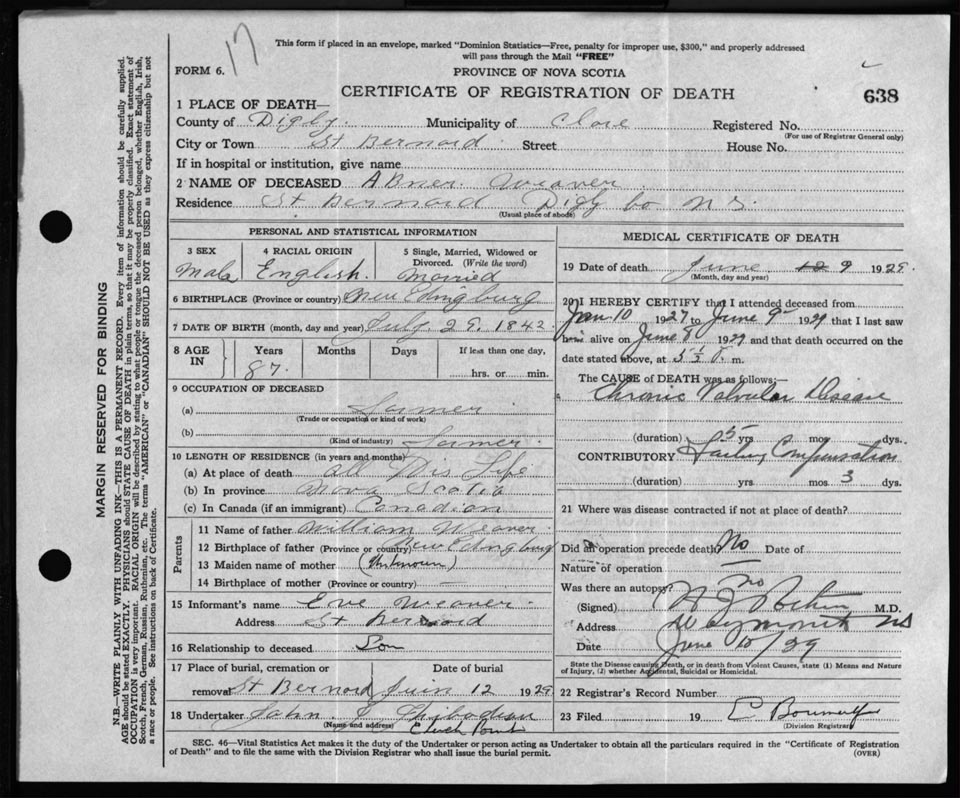 17
This form if placed in an envelope, marked "Dominion Statistics—Free, penalty for improper use, $300," and properly addressed
will pass through the Mail "FREE"
FORM 6.
PROVINCE OF NOVA SCOTIA
CERTIFICATE OF REGISTRATION OF DEATH
638
1 PLACE OF DEATH—
County of Digby. Municipality of Clare Registered No.
(For use of Registrar General only)
City or Town St Bernard Street House No.
If in hospital or institution, give name
2 NAME OF DECEASED Abner Weaver
Residence St Bernard Digby Co N S.
(Usual place of abode)
PERSONAL AND STATISTICAL INFORMATION
3 SEX 4 RACIAL ORIGIN 5 Single, Married, Widowed or
Divorced. (Write the word)
Male English. Married
6 BIRTHPLACE (Province or country) New Edingburg
7 DATE OF BIRTH (month, day and year) July 29. 1842
8 AGE IN Years Months Days If less than one day,
87. hrs. or min.
9 OCCUPATION OF DECEASED
(a) Farmer
(Trade or occupation or kind of work)
(b) Farmer
(Kind of industry)
10 LENGTH OF RESIDENCE (in years and months)
(a) At place of death all His Life
(b) In province Nova Scotia
(c) In Canada (if an immigrant) Canadian
Parents
11 Name of father William Weaver
12 Birthplace of father (Province or country) New Edingburg
13 Maiden name of mother (Unknown)
14 Birthplace of mother (Province or country) —
15 Informant's name Eve Weaver
Address St Bernard
16 Relationship to deceased Son
17 Place of burial, cremation or Date of burial
removal St Bernard Juin 12 1929
18 Undertaker John Thibodeau
(Name and address) Point
MEDICAL CERTIFICATE OF DEATH
19 Date of death June 9 1929.
(Month, day and year)
20 I HEREBY CERTIFY that I attended deceased from
Jan 10 1927 to June 9 1929 that I last saw
him alive on June 1929 and that death occurred on the
date stated above, at 5 m.
The CAUSE of DEATH was as follows:—
Chronic Valvular Disease
(duration) 5 yrs. mos. dys.
CONTRIBUTORY Failing Compensation
(duration) yrs. mos 3 dys.
21 Where was disease contracted if not at place of death?
Did an operation precede death? No Date of
Nature of operation —
Was there an autopsy? no
(Signed) M.D.
Address Weymouth NS
Date June 10/29
State the Disease causing Death, or in death from Violent Causes, state (1) Means and Nature
of Injury, (2) whether Accidental, Suicidal or Homicidal.
22 Registrar's Record Number
23 Filed 19
(Division Registrar)
SEC. 46—Vital Statistics Act makes it the duty of the Undertaker or person acting as Undertaker to obtain all the particulars required in the "Certificate of Registration
of Death" and to file the same with the Division Registrar who shall issue the burial permit. (OVER)
MARGIN RESERVED FOR BINDING
N.B.—WRITE PLAINLY WITH UNFADING INK—THIS IS A PERMANENT RECORD. Every item of information should be carefully supplied.
AGE should be stated EXACTLY. PHYSICIANS should STATE CAUSE OF DEATH in plain terms, so that it may be properly classified. Exact statement of
OCCUPATION is very important. RACIAL ORIGIN will be described by stating to what people or tongue the deceased person belonged, whether English, Irish,
Scotch, French, German, Russian, Ruthenian, etc. The terms "AMERICAN" or "CANADIAN" SHOULD NOT BE USED as they express citizenship but not
a race or people. See instructions on back of Certificate.